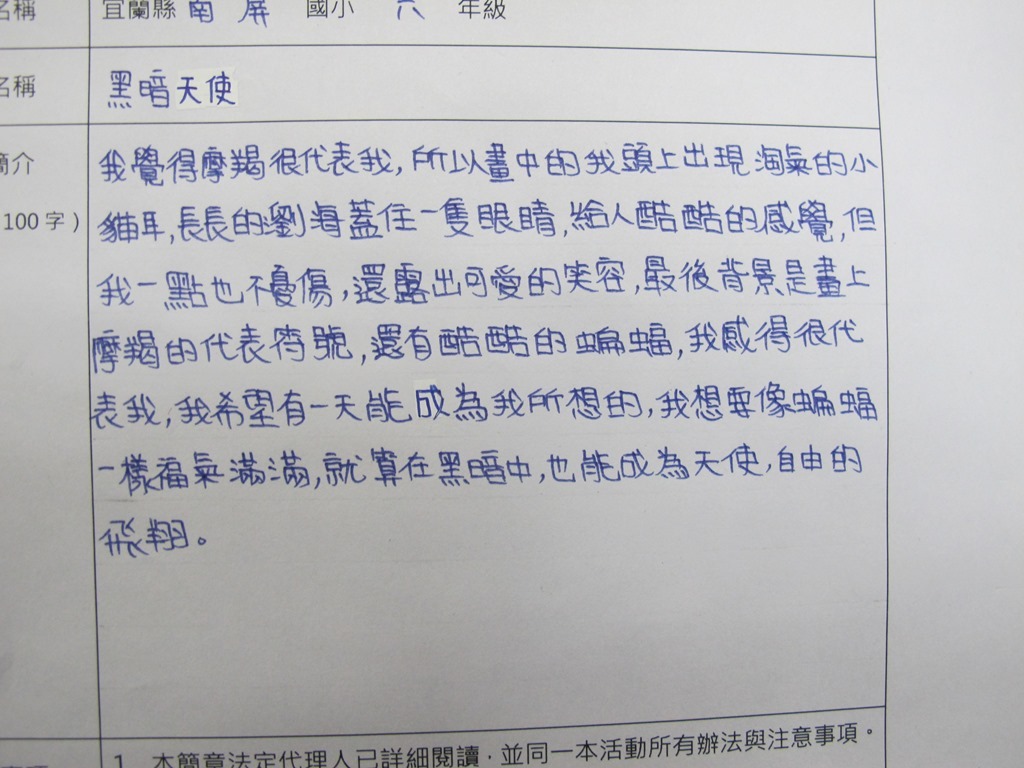 名稱 宜蘭縣 南屏 國小 六 年級
名稱 黑暗天使
簡介 我覺得摩羯很代表我,所以畫中的我頭上出現淘氣的小
100字) 貓耳,長長的劉海蓋住一隻眼睛,給人酷酷的感覺,但
我一點也不憂傷,還露出可愛的笑容,最後背景是畫上
摩羯的代表符號,還有酷酷的蝙蝠,我感得很代
表我,我希望有一天能成為我所想的,我想要像蝙蝠
一樣福氣滿滿,就算在黑暗中,也能成為天使,自由的
飛翔。
1. 本簡章法定代理人已詳細閱讀,並同一本活動所有辦法與注意事項。